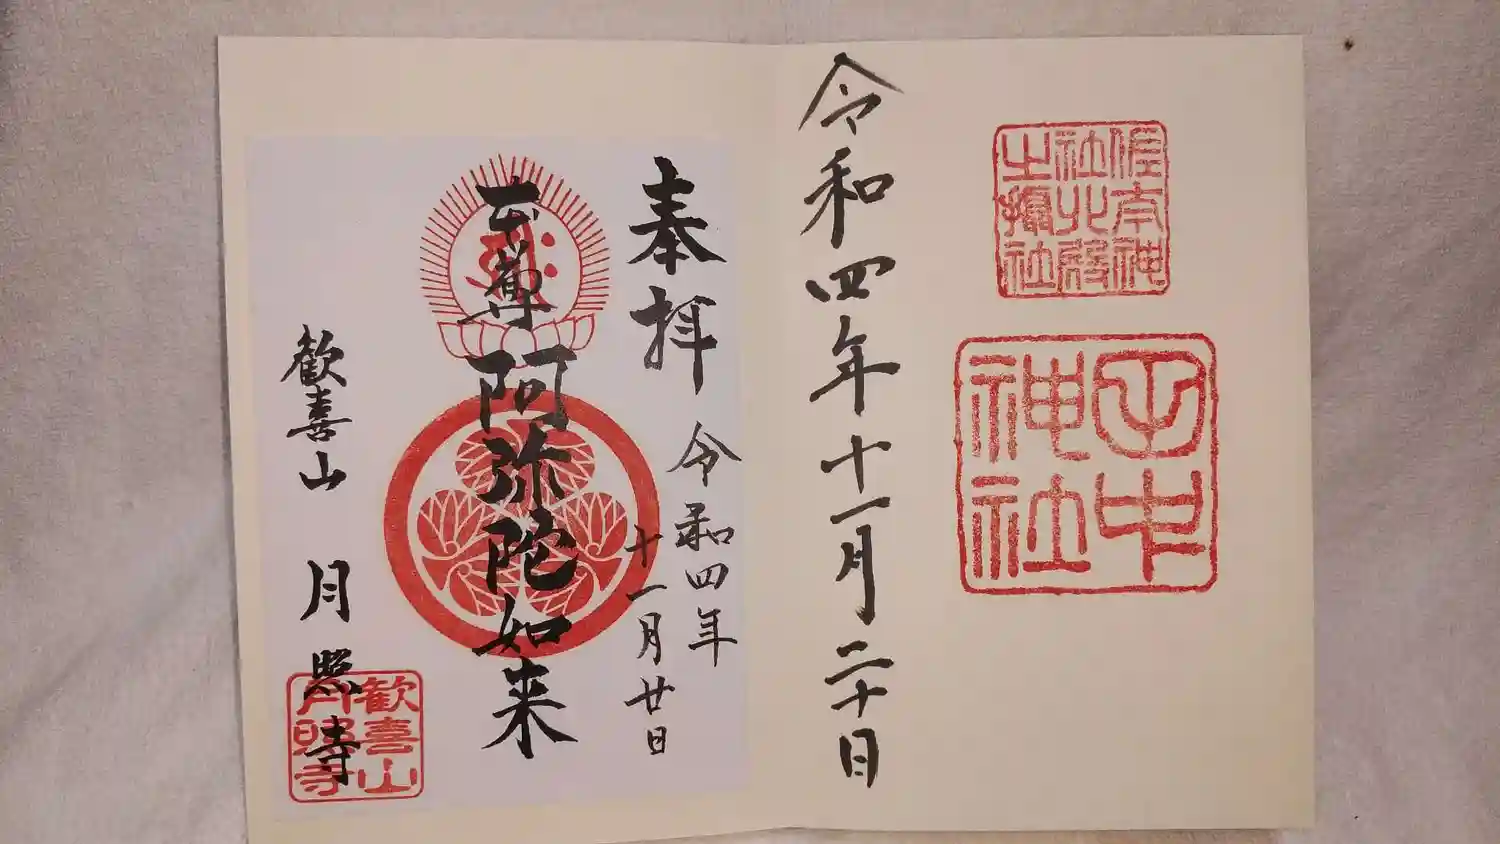 佐太神社
社北殿
土摂社
田中
神社
令和四年十一月二十日
奉拝
令和四年
十一月廿日
本尊 阿弥陀如来
歓喜山 月照寺
歓喜山
月照寺